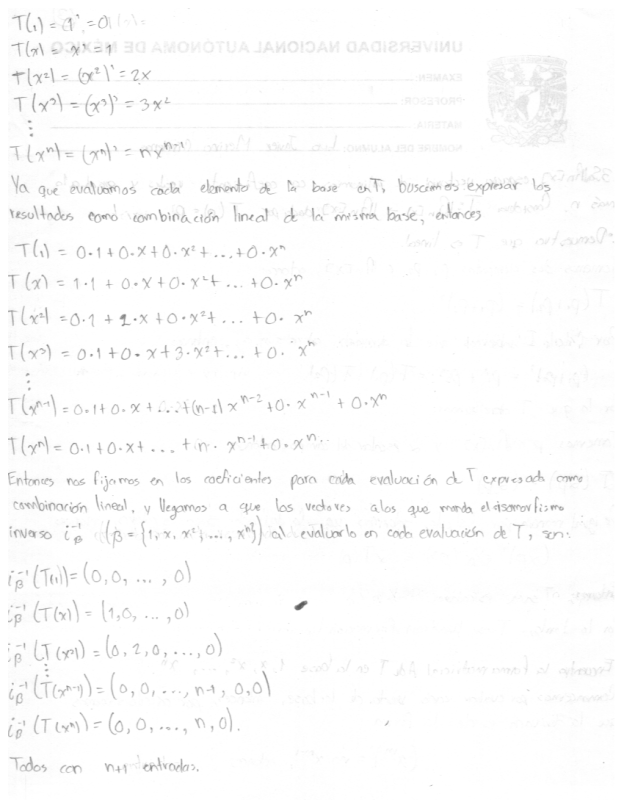 T(1) = 1' = 0
T(x) = x' = 1
T(x²) = (x²)' = 2x
T(x³) = (x³)' = 3x²
⋮
T(xⁿ) = (xⁿ)' = nxⁿ⁻¹
Ya que evaluamos cada elemento de la base en T, buscamos expresar los
resultados como combinación lineal de la misma base, entonces
T(1) = 0·1+0·x+0·x²+...+0·xⁿ
T(x) = 1·1 + 0·x+0·x²+... +0·xⁿ
T(x²) = 0·1 + 2·x+0·x²+... +0· xⁿ
T(x³) = 0·1+0·x+3·x²+... +0· xⁿ
⋮
T(xⁿ⁻¹) = 0·1+0·x+...+(n-1)xⁿ⁻²+0·xⁿ⁻¹+0·xⁿ
T(xⁿ) = 0·1+0·x+... +n· xⁿ⁻¹+0·xⁿ.
Entonces nos fijamos en los coeficientes para cada evaluación de T expresada como
combinación lineal, y llegamos a que los vectores a los que manda el isomorfismo
inverso i_β⁻¹ (β = {1, x, x², ..., xⁿ}) al evaluarlo en cada evaluación de T, son:
i_β⁻¹(T(1)) = (0,0, ..., 0)
i_β⁻¹(T(x)) = (1,0, ..., 0)
i_β⁻¹(T(x²)) = (0,2,0, ..., 0)
⋮
i_β⁻¹(T(xⁿ⁻¹)) = (0,0, ..., n-1, 0,0)
i_β⁻¹(T(xⁿ)) = (0,0, ..., n,0).
Todos con n+1 entradas.